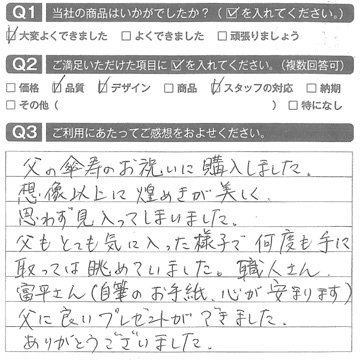 Q1 当社の商品はいかがでしたか?(☑を入れてください。)
☑大変よくできました □よくできました □頑張りましょう
Q2 ご満足いただけた項目に☑を入れてください。(複数回答可)
□価格 ☑品質 ☑デザイン □商品 ☑スタッフの対応 □納期
□その他( ) □特になし
Q3 ご利用にあたってご感想をおよせください。
父の傘寿のお祝いに購入しました。
想像以上に煌めきが美しく
思わず見入ってしまいました。
父もとても気に入った様子で何度も手に
取っては眺めていました。職人さん
富平さん(自筆のお手紙、心が安まります)
父に良いプレゼントができました。
ありがとうございました。